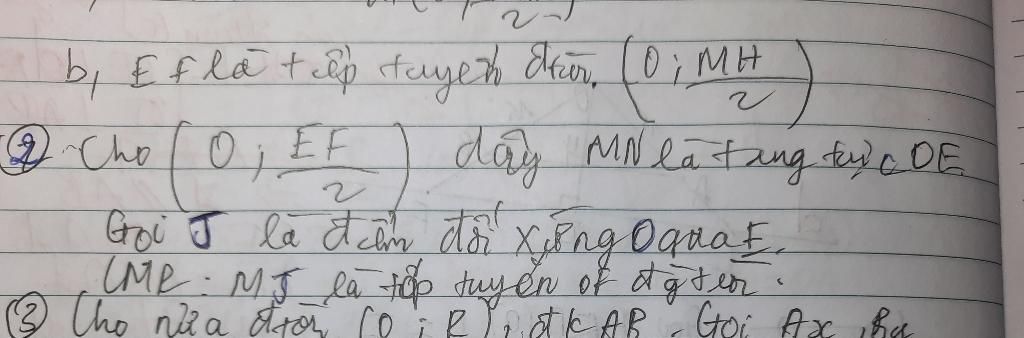 b, EF là tiếp tuyến đtròn. (O; MH/2)
② Cho (O; EF/2) dây MN là trung trực OE
Gọi J là điểm đối xứng O qua E.
CMR: MJ là tiếp tuyến of đg tròn.
③ Cho nửa đtròn (O; R), đk AB. Gọi Ax,